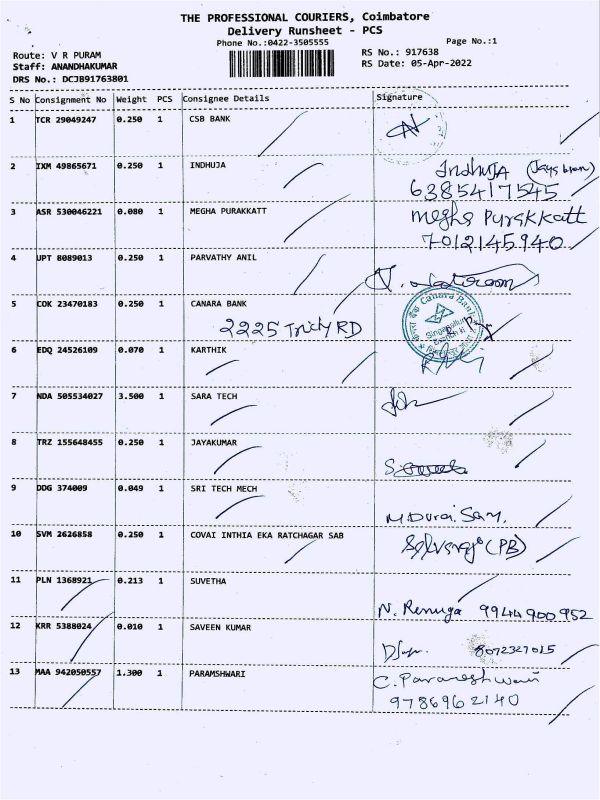 THE PROFESSIONAL COURIERS, Coimbatore
Delivery Runsheet - PCS
Phone No.:0422-3505555
Page No.:1
Route: V R PURAM
RS No.: 917638
Staff: ANANDHAKUMAR
RS Date: 05-Apr-2022
DRS No.: DCJB91763801
S No Consignment No Weight PCS Consignee Details Signature
1 TCR 29049247 0.250 1 CSB BANK
2 IXM 49865671 0.250 1 INDHUJA IndhuJA
6385417545
3 ASR 530046221 0.080 1 MEGHA PURAKKATT megha Purakkatt
7012145940
4 UPT 8089013 0.250 1 PARVATHY ANIL
5 COK 23470183 0.250 1 CANARA BANK Canara Bank
2225 Trichy RD
6 EDQ 24526109 0.070 1 KARTHIK
7 NDA 505534027 3.500 1 SARA TECH
8 TRZ 155648455 0.250 1 JAYAKUMAR
9 DDG 374009 0.049 1 SRI TECH MECH
M.Durai.Samy.
10 SVM 2626858 0.250 1 COVAI INTHIA EKA RATCHAGAR SAB Selvaraj (PB)
11 PLN 1368921 0.213 1 SUVETHA
N. Renuga 9944900952
12 KRR 5388024 0.010 1 SAVEEN KUMAR
8072327015
13 MAA 942050557 1.300 1 PARAMSHWARI C. Parameshwari
9786962140